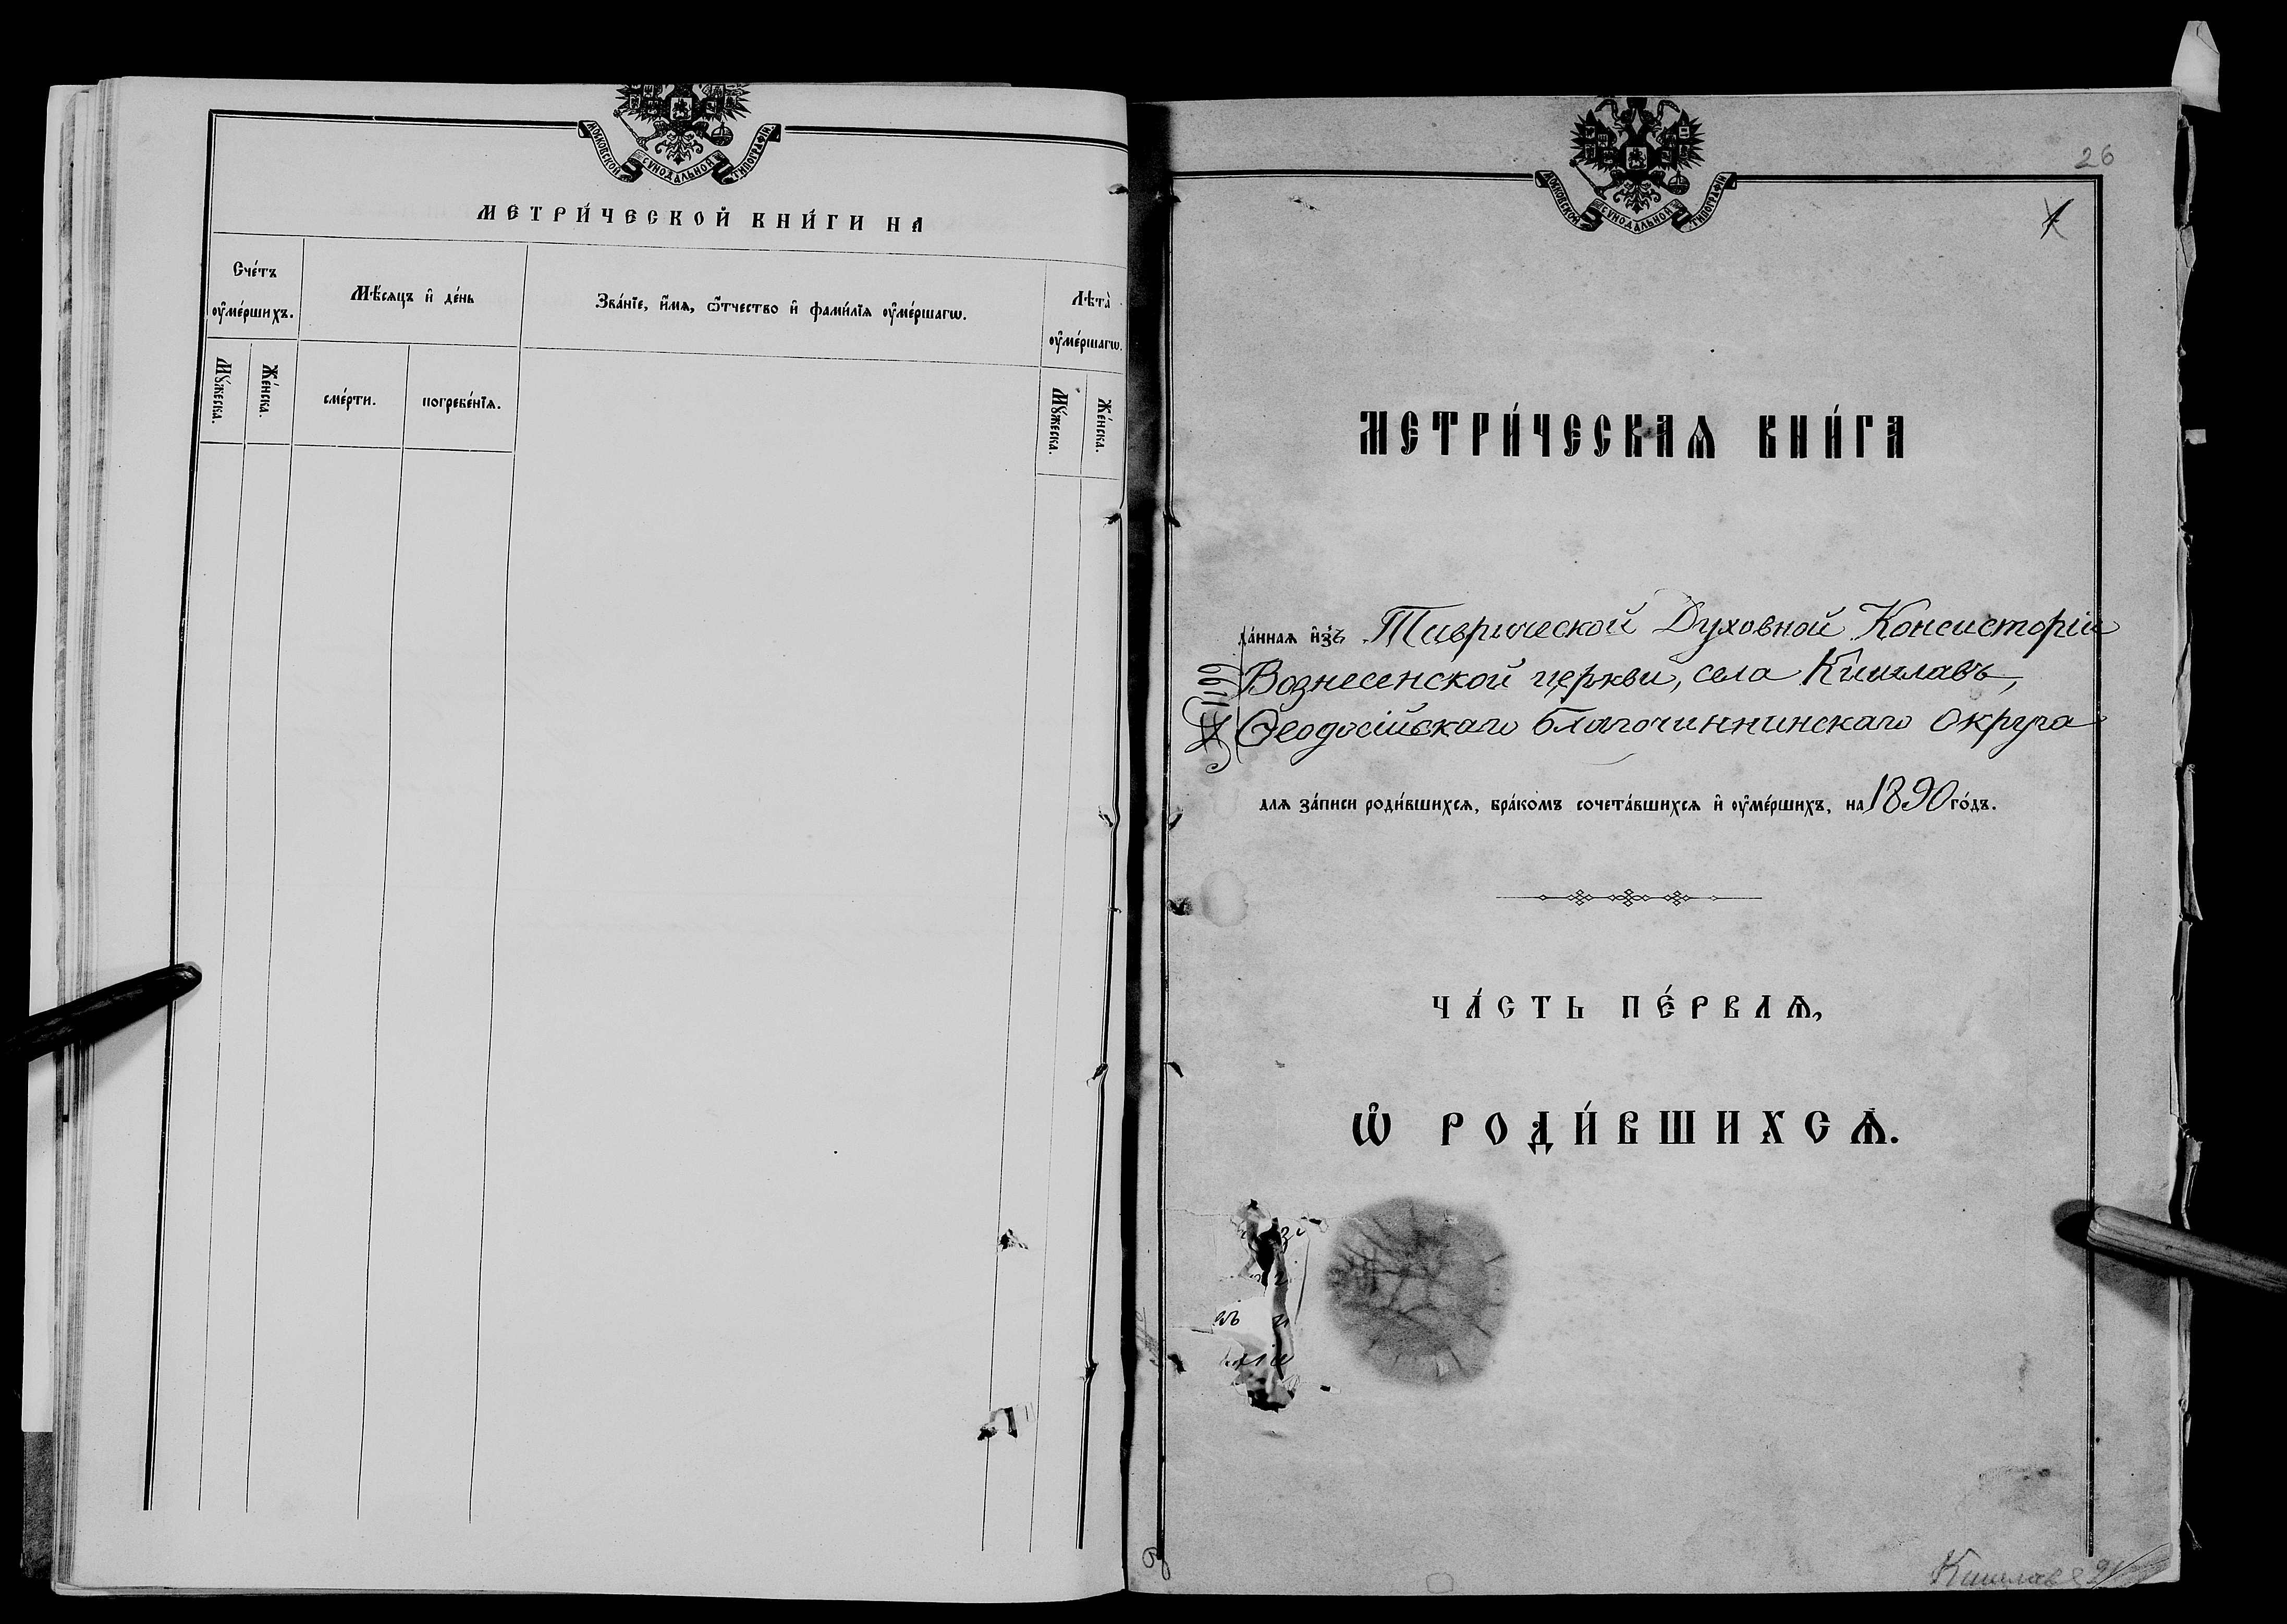 МОСКОВСКОЙ СѴНОДАЛЬНОЙ ТИПОГРАФІИ.
МЕТРИ́ЧЕСКОЙ КНИ́ГИ НА
Сче́тъ
ᲂу҆ме́ршихъ.
Мѣ́сяцъ и҆ де́нь
Зва́нїе, и҆́мѧ, ѻ҆́тчество и҆ фами́лїѧ ᲂу҆ме́ршагѡ.
Лѣта̀
ᲂу҆ме́ршагѡ.
Мꙋ́жеска.
Же́нска.
сме́рти.
погребе́нїѧ.
Мꙋ́жеска.
Же́нска.
26
МОСКОВСКОЙ СѴНОДАЛЬНОЙ ТИПОГРАФІИ.
1
МЕТРИ́ЧЕСКАѦ КНИ́ГА
да́ннаѧ и҆зъ Таврической Духовной Консисторіи
Вознесенской церкви, села Кишлавъ,
Ѳеодосійскаго благочинническаго округа
№ 1199
длѧ за́писи роди́вшихсѧ, бра́комъ сочета́вшихсѧ и҆ ᲂу҆ме́ршихъ, на 1890 го́дъ.
ЧА́СТЬ ПЕ́РВАѦ,
Ѡ҆ РОДИ́ВШИХСѦ.
Кишлавъ